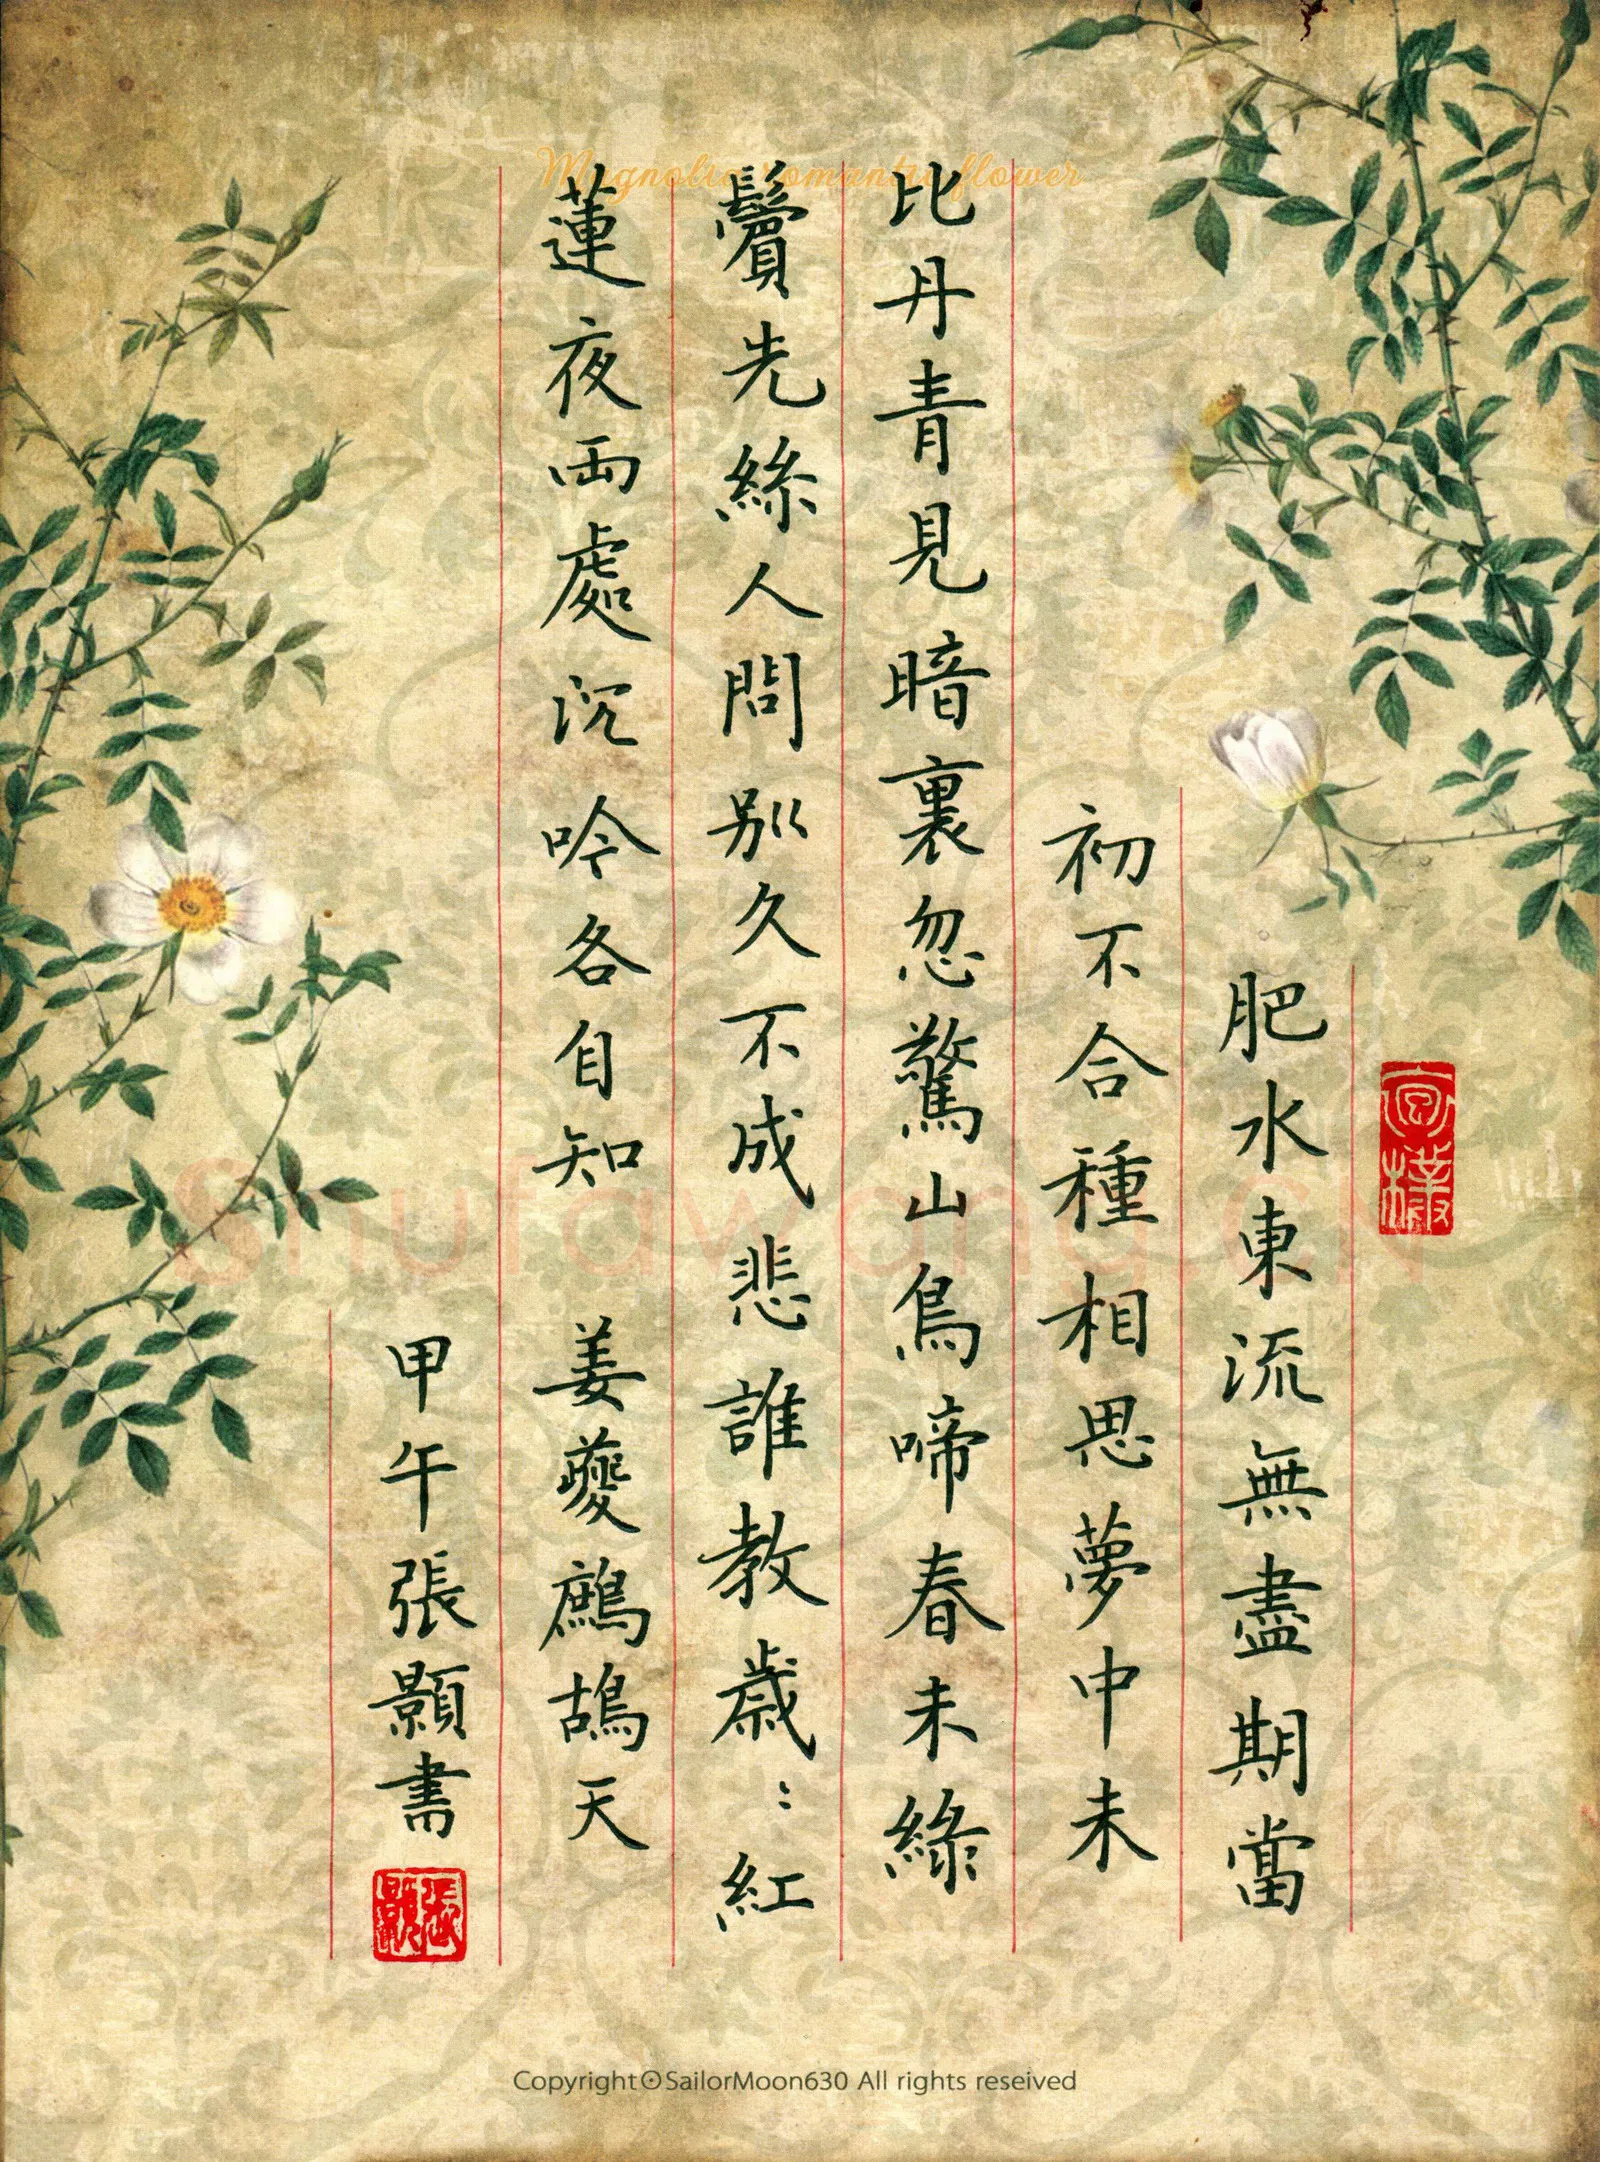 肥水東流無盡期當
初不合種相思夢中未
比丹青見暗裏忽驚山鳥啼春未綠
鬢先絲人間別久不成悲誰教歲：紅
蓮夜兩處沉吟各自知 姜夔鷓鴣天
甲午張顥書
張顥
Magnolia romantic flower
shufawang.cn
Copyright⊙SailorMoon630 All rights reseived